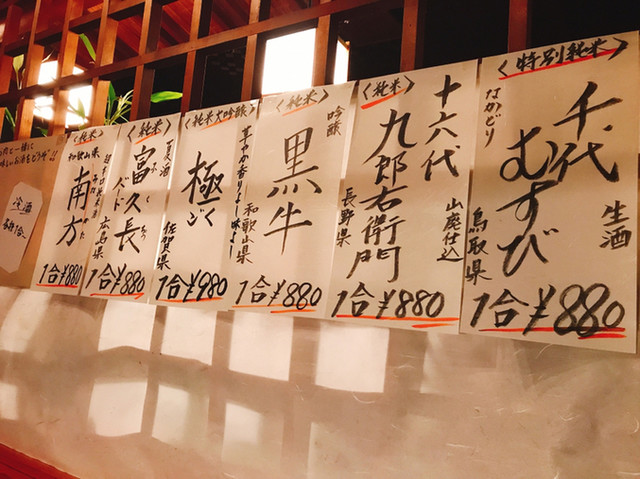 〈特別純米〉
なかどり
千代むすび
生酒
鳥取県
1合¥880
〈純米〉
十六代
九郎右衛門
山廃仕込
長野県
1合¥880
〈純米〉
吟醸
黒牛
和歌山県
1合¥880
〈純米大吟醸〉
極
ごく
佐賀県
1合¥980
〈純米〉
富久長
広島県
1合¥880
〈純米〉
和歌山県
南方
1合¥880
冷酒